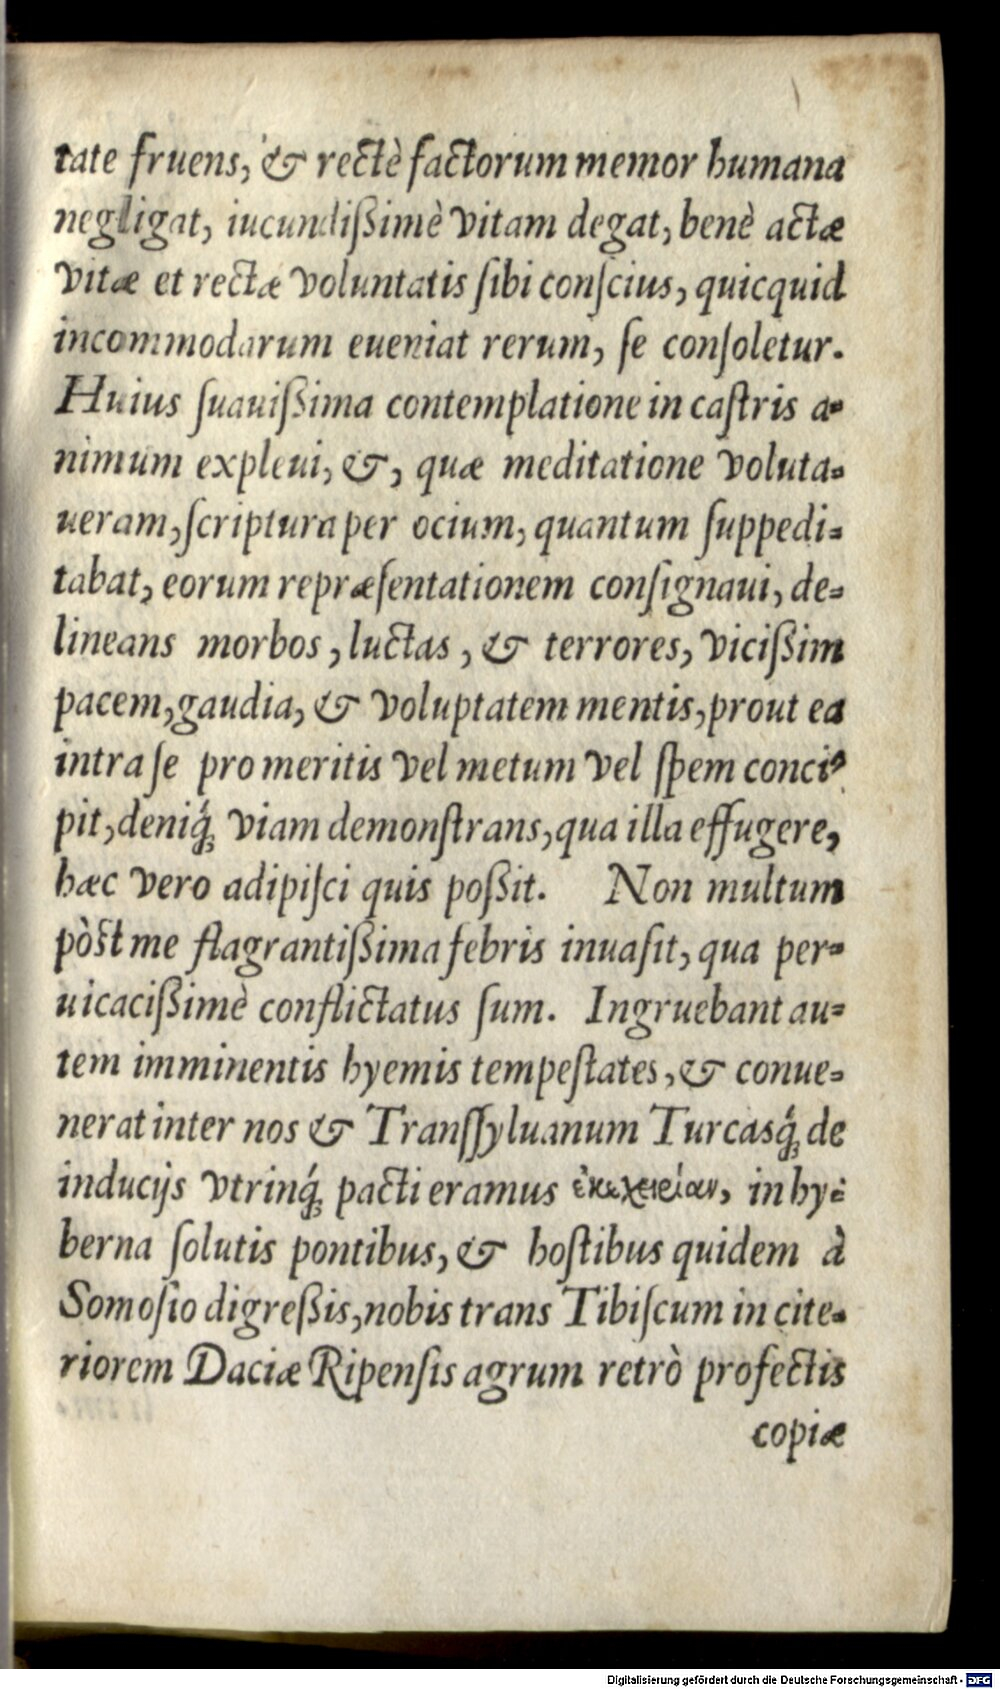 tate fruens, & rectè factorum memor humana
negligat, iucundißimè vitam degat, benè actæ
vitæ et rectæ voluntatis ſibi conſcius, quicquid
incommodarum eueniat rerum, ſe conſoletur.
Huius ſuauißima contemplatione in caſtris a-
nimum expleui, &, quæ meditatione voluta-
ueram, ſcriptura per ocium, quantum ſuppedi-
tabat, eorum repræſentationem conſignaui, de-
lineans morbos, luctas, & terrores, vicißim
pacem, gaudia, & voluptatem mentis, prout ea
intra ſe pro meritis vel metum vel ſpem conci-
pit, deniq́; viam demonſtrans, qua illa effugere,
hæc vero adipiſci quis poßit. Non multum
pòst me flagrantißima febris inuaſit, qua per-
uicacißimè conflictatus ſum. Ingruebant au-
tem imminentis hyemis tempeſtates, & conue-
nerat inter nos & Tranſſyluanum Turcasq́; de
inducijs vtrinq́; pacti eramus ἐκεχειρίαν, in hy-
berna ſolutis pontibus, & hoſtibus quidem à
Somoſio digreßis, nobis trans Tibiſcum in cite-
riorem Daciæ Ripenſis agrum retrò profectis
copiæ
Digitalisierung gefördert durch die Deutsche Forschungsgemeinschaft - DFG